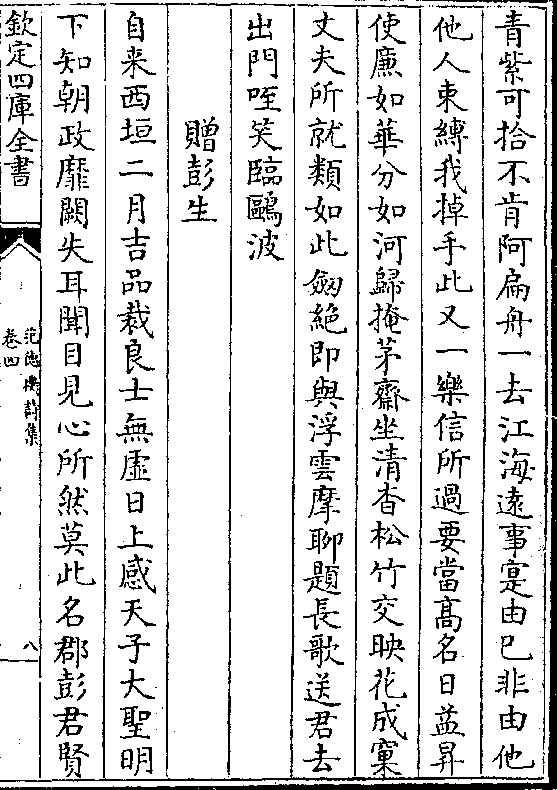 青紫可拾不肯阿扁舟一去江海逺事寔由已非由他
他人束縛我掉手此又一樂信所過要當髙名日益昇
使廉如華分如河歸掩茅齋坐清杳松竹交映花成窠
丈夫所就類如此劔絶即與浮雲摩聊題長歌送君去
出門咥笑臨鷗波
贈彭生
自来西垣二月吉品裁良士無虚日上感天子大聖明
下知朝政靡闕失耳聞目見心所然莫此名郡彭君賢
欽定四庫全書
范徳機詩集
卷四
八